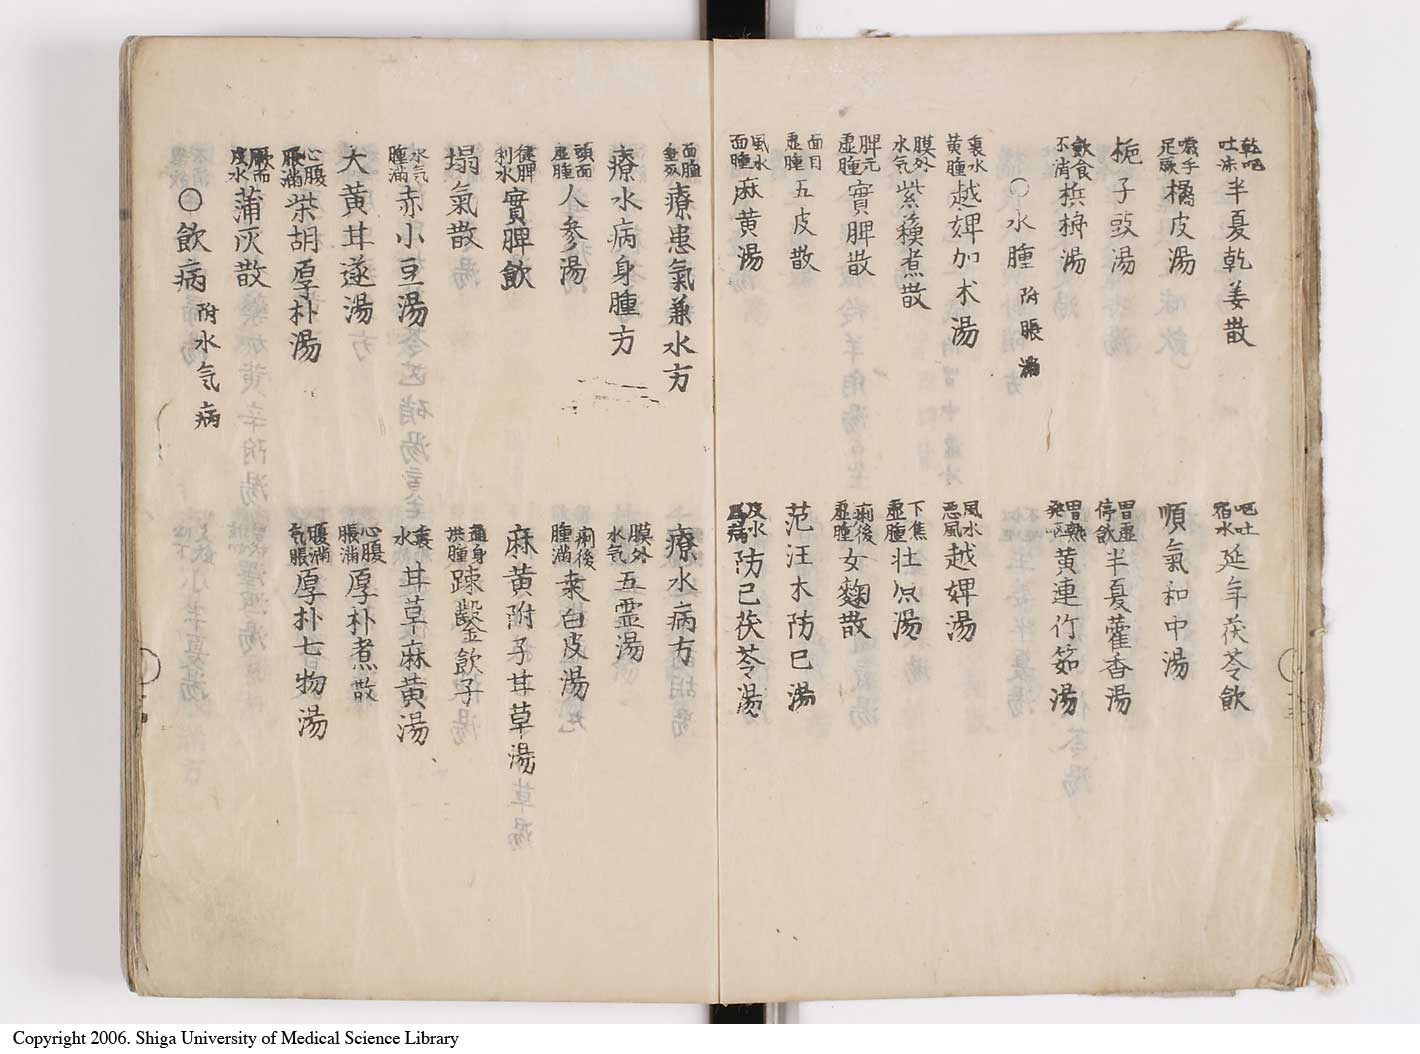 乾嘔吐沫 半夏乾姜散
嘔吐宿水 延年茯苓飲
噦手足厥 橘皮湯
順氣和中湯
梔子豉湯
胃虚停飲 半夏藿香湯
飲食不消 檳榔湯
胃熱発嘔 黄連竹筎湯
○水腫 附脹滿
裏水黄腫 越婢加朮湯
風水悪風 越婢湯
膜外水气 紫穐煮散
下焦虚腫 壮原湯
脾元虚腫 實脾散
痢後虚腫 女麴散
面目虚腫 五皮散
范汪木防已湯
風水面腫 麻黄湯
皮水為病 防已茯苓湯
療患氣兼水方
療水病方
療水病身腫方
膜外水气 五霊湯
頭面虚腫 人参湯
痢後腫滿 桒白皮湯
健脾利水 實脾飲
麻黄附子甘草湯
塌氣散
遍身洪腫 踈鑿飲子
水气腫滿 赤小豆湯
裏水 甘草麻黄湯
大黄甘遂湯
心腹脹滿 厚朴煮散
心腹脹滿 柴胡厚朴湯
腹滿气脹 厚朴七物湯
厥而皮水 蒲灰散
○飲病 附水气病
Copyright 2006. Shiga University of Medical Science Library